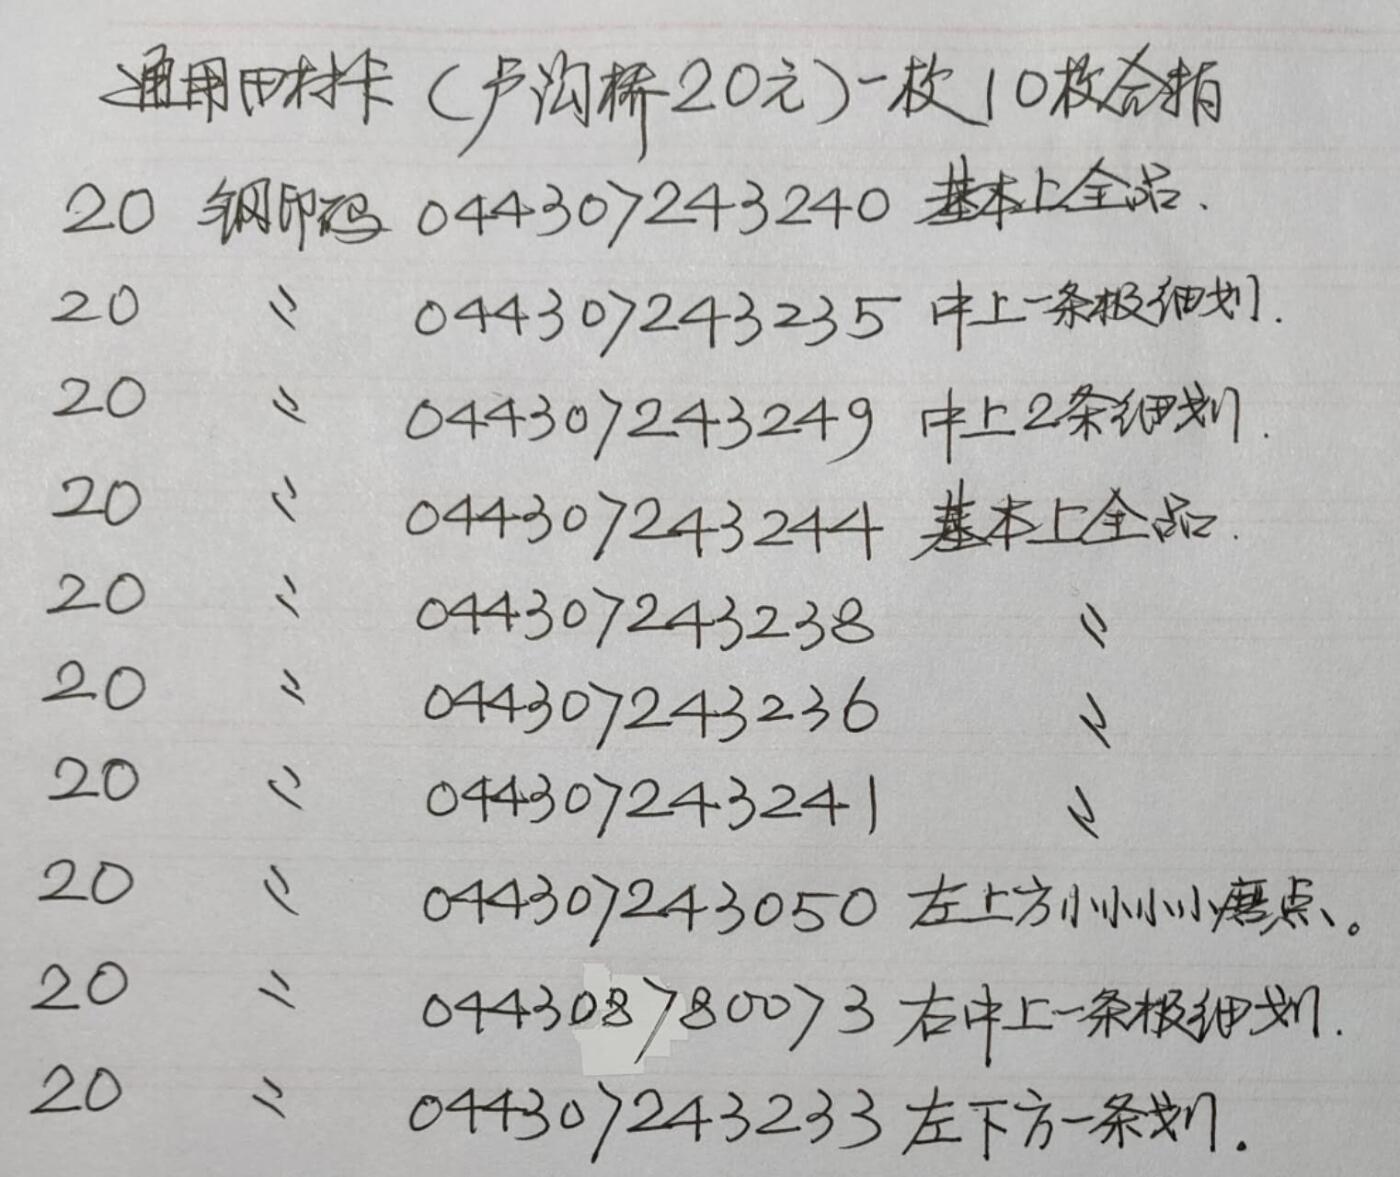 通用田村卡（卢沟桥20元）一枚10枚合拍
20 钢印码 044307243240 基本上全品.
20 〃 044307243235 中上一条极细划.
20 〃 044307243249 中上2条细划.
20 〃 044307243244 基本上全品.
20 〃 044307243238 〃
20 〃 044307243236 〃
20 〃 044307243241 〃
20 〃 044307243050 左上方小小小小磨点、。
20 〃 044308780073 右中上一条极细划.
20 〃 044307243233 左下方一条划.